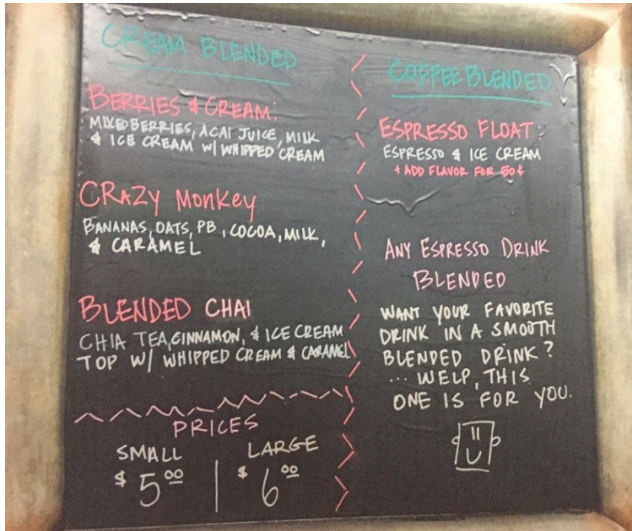 CREAM BLENDED
BERRIES & CREAM:
MIXED BERRIES, ACAI JUICE, MILK
& ICE CREAM W/ WHIPPED CREAM
CRAZY MONKEY
BANANAS, OATS, PB, COCOA, MILK,
& CARAMEL
BLENDED CHAI
CHIA TEA, CINNAMON, & ICE CREAM
TOP W/ WHIPPED CREAM & CARAMEL
PRICES
SMALL
$5.00
LARGE
$6.00
COFFEE BLENDED
ESPRESSO FLOAT:
ESPRESSO & ICE CREAM
+ ADD FLAVOR FOR 50¢
ANY ESPRESSO DRINK
BLENDED
WANT YOUR FAVORITE
DRINK IN A SMOOTH
BLENDED DRINK?
... WELP, THIS
ONE IS FOR YOU.